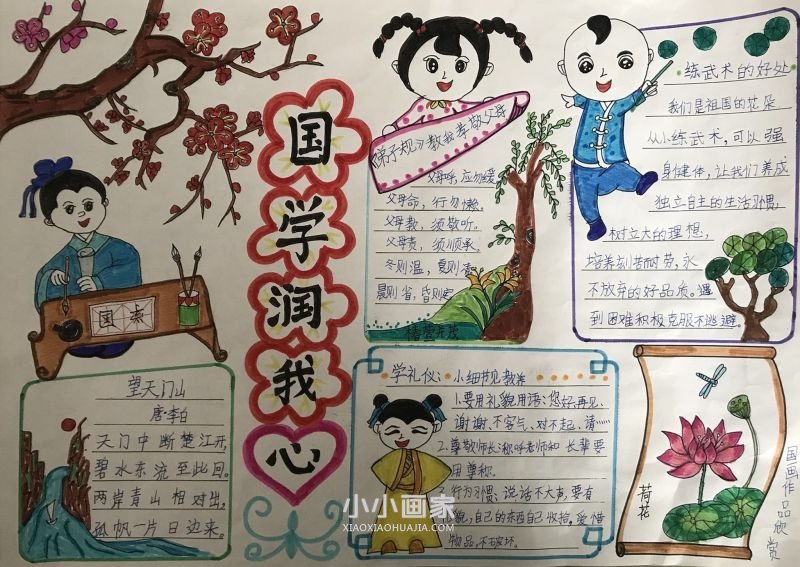 国
学
润
我
心
国
望天门山
唐李白
天门中断楚江开,
碧水东流至此回。
两岸青山相对出,
孤帆一片日边来。
弟子规习教我孝敬父母
父母呼,应勿缓
父母命,行勿懒。
父母教,须敬听。
父母责,须顺承。
冬则温,夏则凊
晨则省,昏则定
练武术的好处
我们是祖国的花朵
从小练武术,可以强
身健体,让我们养成
独立自主的生活习惯,
树立大的理想,
培养刻苦耐劳,永
不放弃的好品质。遇
到困难积极克服不逃避。
学礼仪:小细节见教养
1.要用礼貌用语:您好,再见、
谢谢、不客气、对不起、请……
2.尊敬师长:称呼老师和长辈要
用尊称。
行为习惯:说话不大声,要有
礼貌,自己的东西自己收拾。爱惜
物品,不破坏。
荷花
国画作品欣赏
小小画家
XIAOXIAOHUAJIA.COM